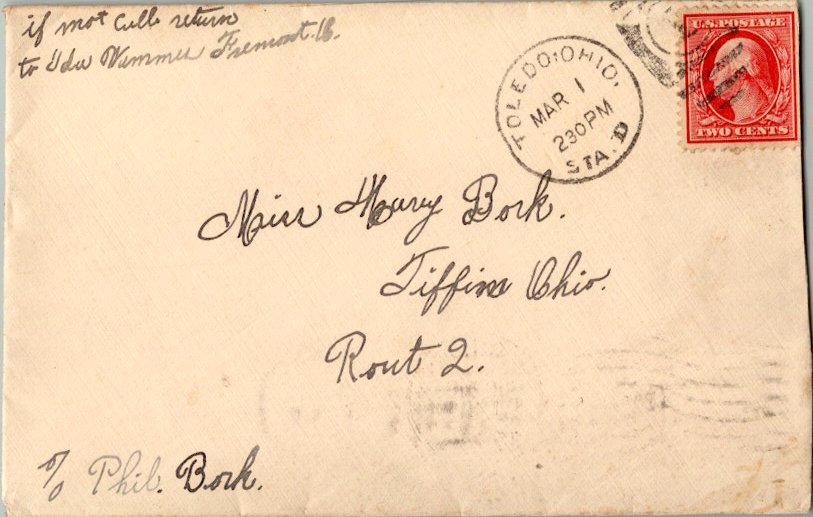 if not Culb return
to Ida Wammes Fremont. O.
TOLEDO, OHIO.
MAR 1
230 PM
STA. D
U.S. POSTAGE
TWO CENTS
Miss Mary Bork.
Tiffin Ohio.
Rout 2.
c/o Phil. Bork.